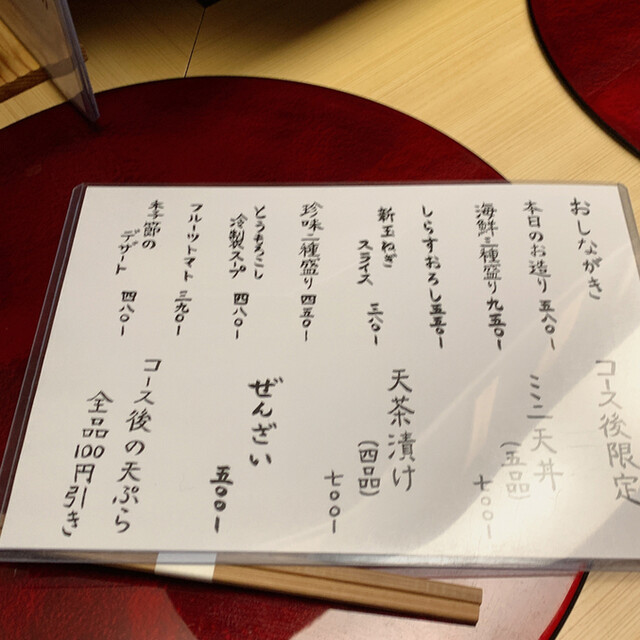 おしながき
本日のお造り 五八〇ー
海鮮三種盛り 九五〇ー
しらすおろし 五五〇ー
新玉ねぎ
スライス 三八〇ー
珍味二種盛り 四五〇ー
とうもろこし
冷製スープ 四八〇ー
フルーツトマト 三九〇ー
季節の
デザート 四八〇ー
コース後限定
ミニ天丼
(五品)
七〇〇ー
天茶漬け
(四品)
七〇〇ー
ぜんざい
五〇〇ー
コース後の天ぷら
全品100円引き